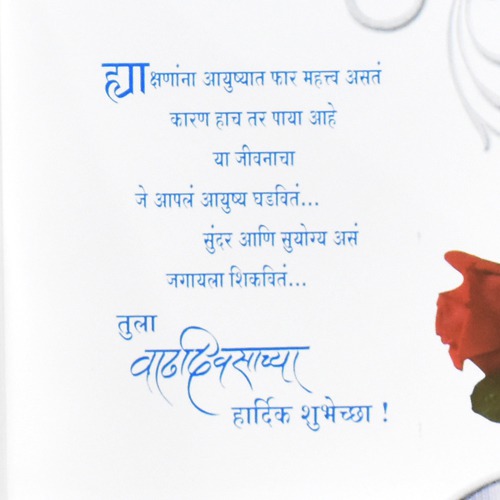 ह्या क्षणांना आयुष्यात फार महत्त्व असतं
कारण हाच तर पाया आहे
या जीवनाचा
जे आपलं आयुष्य घडवितं...
सुंदर आणि सुयोग्य असं
जगायला शिकवितं...
तुला
वाढदिवसाच्या
हार्दिक शुभेच्छा !